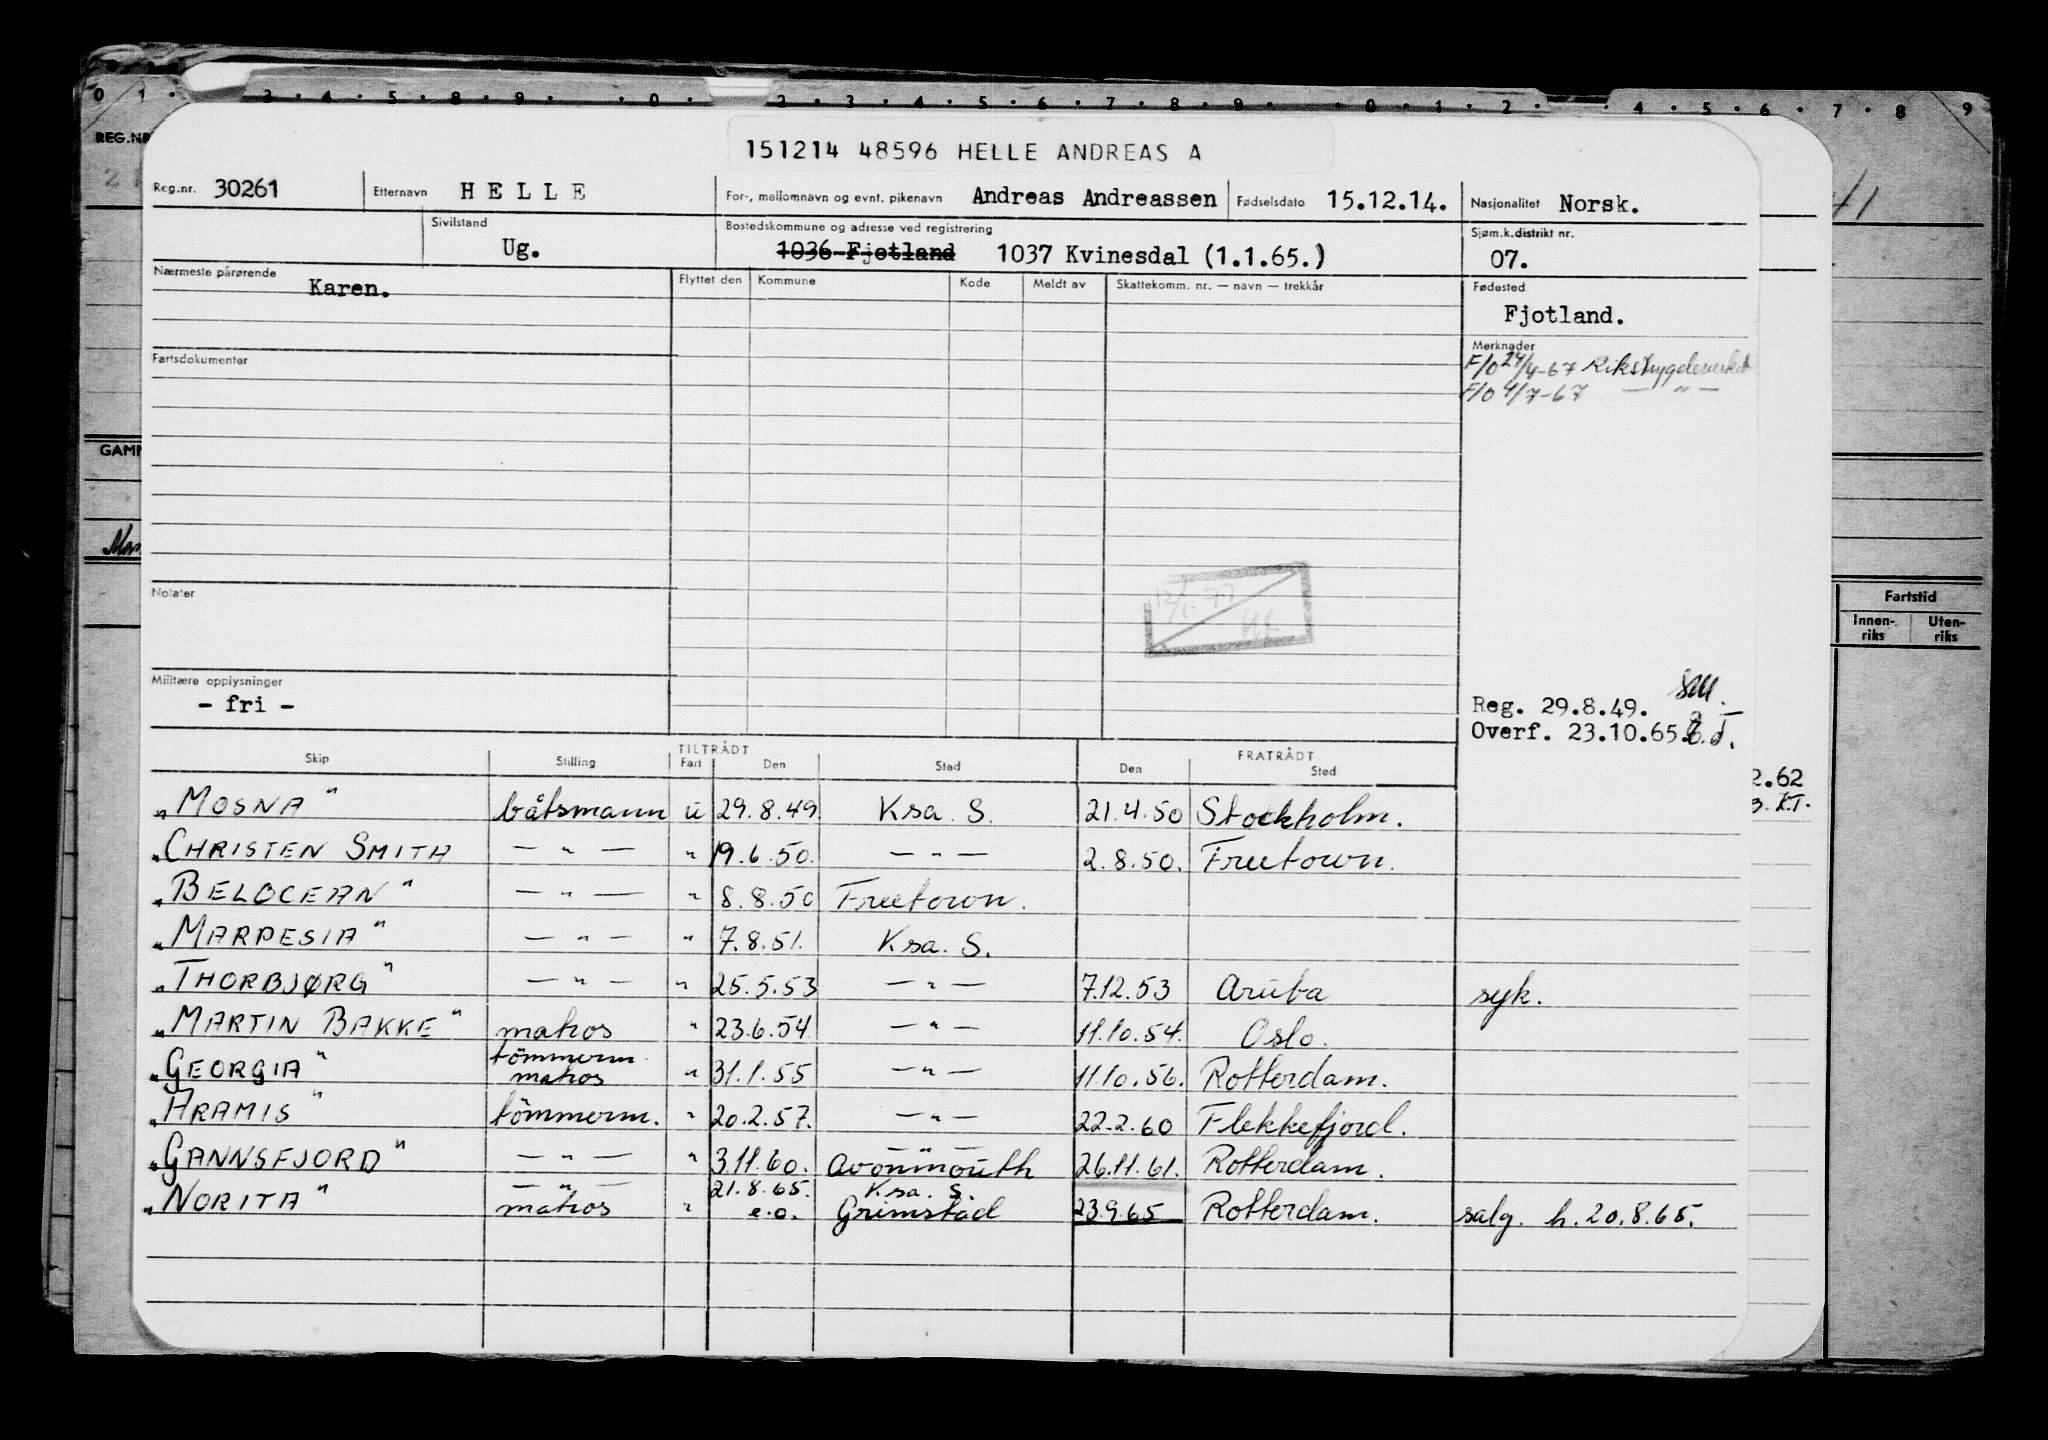 0 1 . . 3 . 4 . 5 . 8 . 9 . . 0 . 2 . 3 . 4 . 5 . 6 . 7 . 8 . 9 . . 0 . 1 . 2 . . 4 . 5 . 6 . 7 . 8 9
REG.NR
151214 48596 HELLE ANDREAS A
Reg.nr. 30261 Etternavn HELLE For-, mellomnavn og evnt. pikenavn Andreas Andreassen Fødselsdato 15.12.14. Nasjonalitet Norsk.
Sivilstand Ug. Bostedskommune og adresse ved registrering 1036 Fjotland 1037 Kvinesdal (1.1.65.) Sjøm.k.distrikt nr. 07.
Nærmeste pårørende Karen. Flyttet den Kommune Kode Meldt av Skattekomm. nr. — navn — trekkår Fødested
Fjotland.
Fartsdokumenter
Merknader
F/O 24/4-67 Rikstrygdeverket
F/O 4/7-67 — " —
GAMM
Notater
Fartstid
Innen-riks Uten-riks
Militære opplysninger
- fri -
Reg. 29.8.49.
Overf. 23.10.65.
2.62
K.T.
TILTRÅDT FRATRÅDT
Skip Stilling Fart Den Sted Den Sted
„MOSNA" båtsmann u 29.8.49 Ksa. S. 21.4.50 Stockholm.
„CHRISTEN SMITH — " — " 19.6.50. — " — 2.8.50. Freetown.
„BELOCEAN" — " — " 8.8.50 Freetown.
„MARPESIA" — " — " 7.8.51. Ksa. S.
„THORBJØRG" — " — " 25.5.53 — " — 7.12.53 Aruba syk.
„MARTIN BAKKE" matros " 23.6.54 — " — 11.10.54. Oslo.
„GEORGIA" tömmerm. matros " 31.1.55 — " — 11.10.56. Rotterdam.
„ARAMIS" tömmerm. " 20.2.57. — " — 22.2.60 Flekkefjord.
„GANNSFJORD" — " — " 3.11.60. — " — Avonmouth 26.11.61. Rotterdam.
„NORITA" — " — matros " 21.8.65. e.o. Ksa. S. Grimstad 23.9.65 Rotterdam. salg. h. 20.8.65.